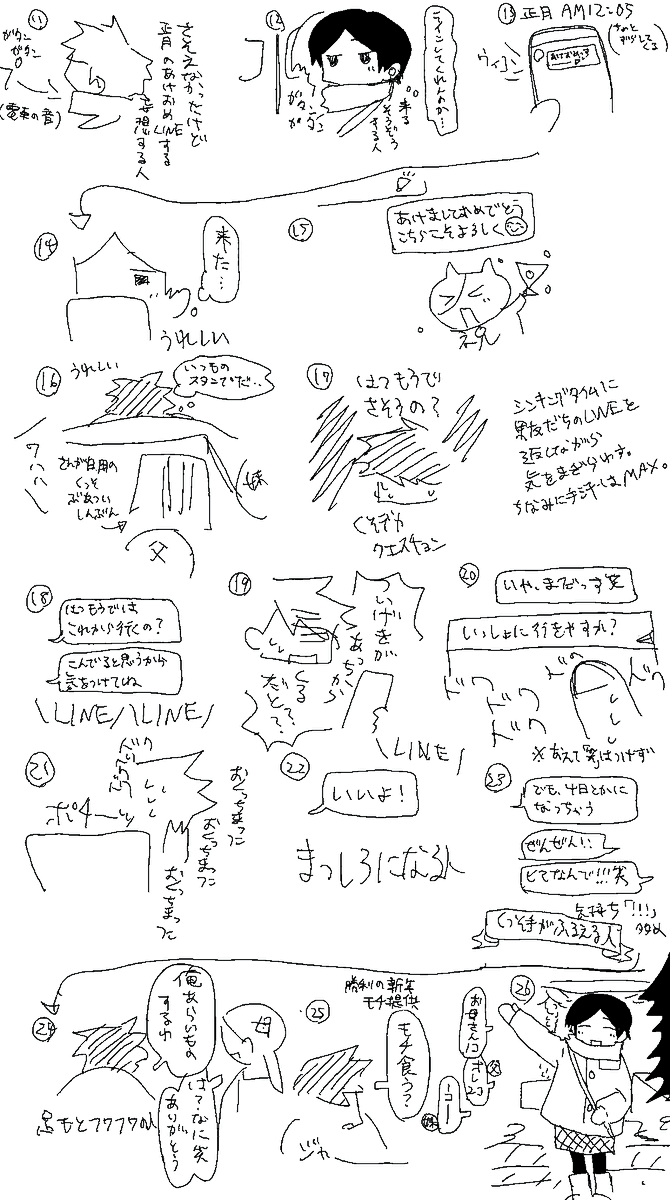 ⑪
ガタン
ガタン
(電車の音)
さそえなかったけど
正月のあけおめLINEする
妄想する人
⑫
ガタン
ガタン
ラインしてくれんのか…
来る
そうぞう
する人
⑬ 正月 AM12:05
(ちょっと
ずらして
くる)
ヴィーン
あけおめっす
⑭
来た…
うれしい
⑮
あけましておめでとう
こちらこそよろしく
ネル
⑯
うれしい
いつもの
スタンプだ…
ワハハハ
さんが日用の
くっそ
ぶあつい
しんぶん
父
妹
⑰
はつもうで
さそうの?
くそでか
クエスチョン
シンキングタイムに
男友だちのLINEを
返しながら
気をまぎらわす。
ちなみに手汗はMAX。
⑱
はつもうでは
これから行くの?
こんでると思うから
気をつけてね
\LINE/\LINE/
⑲
ついげきが
あっちから
くる
だと??
\LINE/
⑳
いや、まだっす笑
いっしょに行きやすか?
ドワ
ドワ
ドワ
ドワ
※あえて笑はつけず
㉑
ドワ
ポチーッ
おくっちまった
おくっちまった
おくっちまった
㉒
いいよ!
まっしろになる人
㉓
でも、4日とかに
なっちゃう
ぜんぜん!!
ヒマなんで!!!笑
気持ち「!!!」
多め
くっそ手がふるえる人
㉔
俺あらいもの
するわ
母
は?なに笑
ありがとう
足もとフワフワ
㉕
勝利の新年
モチ提供
モチ食う?
お母さん1コ
オレ2コ
父
1コー
妹
ジャー
㉖